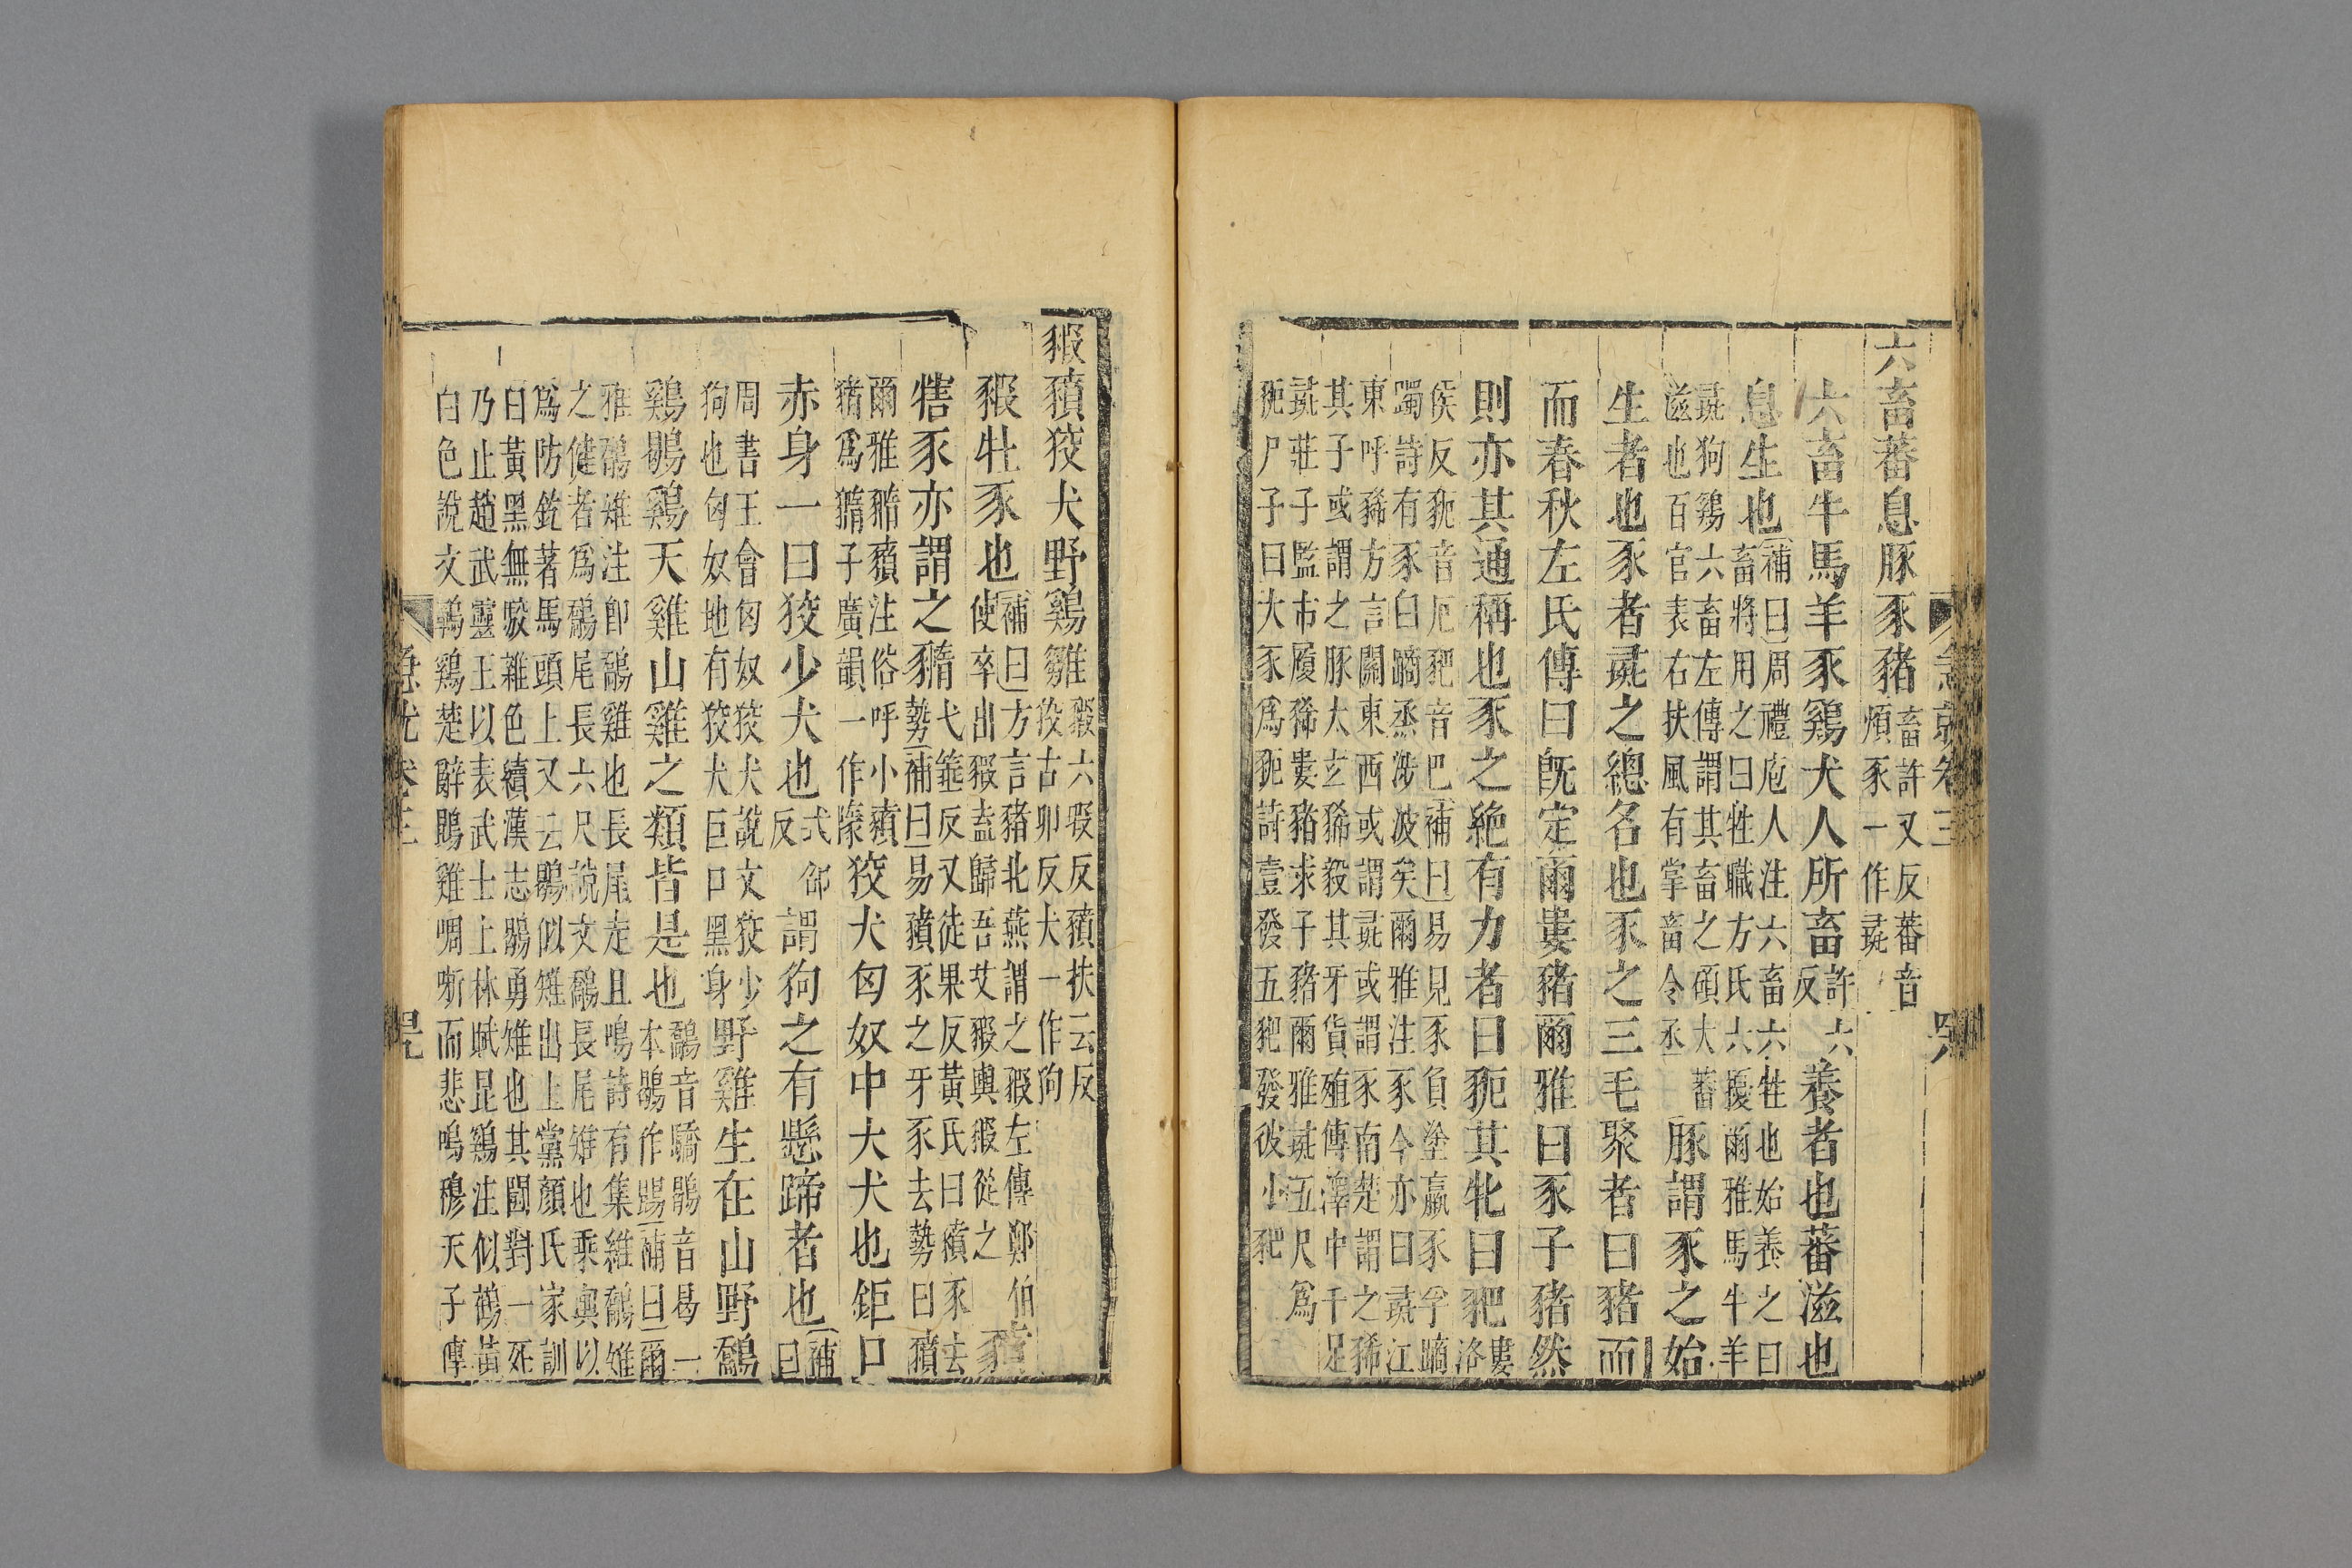 六畜蕃息豚豕豬畜許又反蕃音
煩豕一作彘
六畜牛馬羊豕鷄犬人所畜許六反養者也蕃滋也
息生也補曰周禮庖人注六畜六牲也始養之曰
畜將用之曰牲職方氏六擾爾雅馬牛羊
彘狗鷄六畜左傳謂其畜之碩大蕃
滋也百官表右扶風有掌畜令丞豚謂豕之始
生者也豕者彘之總名也豕之三毛聚者曰豬而
而春秋左氏傳曰旣定爾婁豬爾雅曰豕子豬然
則亦其通稱也豕之絶有力者曰豟其牝曰豝婁洛
侯反豟音厄豝音巴補曰易見豕負塗羸豕孚蹢
躅詩有豕白蹢烝涉波矣爾雅注豕今亦曰彘江
東呼豨方言關東西或謂彘或謂豕南楚謂之豨
其子或謂之豚太玄豨毅其牙貨殖傳澤中千足
彘莊子監市履豨婁豬求子豬爾雅彘五尺爲
豟尸子曰大豕爲豟詩壹發五豝發彼小豝
急就卷三
罕
豭豶狡犬野鷄雛豭六豭反豶扶云反
狡古卯反犬一作狗
豭牡豕也補曰方言豬北燕謂之豭左傳鄭伯
使卒出豭盍歸吾艾豭輿豭從之
犗豕亦謂之豶弋箠反又徒果反黃氏曰豶豕去
勢補曰易豶豕之牙豕去勢曰豶
爾雅豬豶注俗呼小豶
豬爲豬子廣韻一作隊狡犬匈奴中大犬也鉅口
赤身一曰狡少犬也式邵反謂狗之有懸蹄者也補曰
周書王會匈奴狡犬說文狡少
狗也匈奴地有狡犬巨口黑身野雞生在山野鷸
鷄鶡鷄天雞山雞之類皆是也鷸音驕鶡音曷一
本鶡作鶡補曰爾
雅鷸雉注卽鷸雞也長尾走且鳴詩有集維鷸雉
之健者爲鷸尾長六尺說文鷸長尾雉也乘輿以
爲防釳著馬頭上又云鶡似雉出上黨顏氏家訓
曰黃黑無駮雜色續漢志鶡勇雉也其鬬對一死
乃止趙武靈王以表武士上林賦昆鷄注似鶴黃
白色說文鶤鷄楚辭鵾雞啁哳而悲鳴穆天子傳